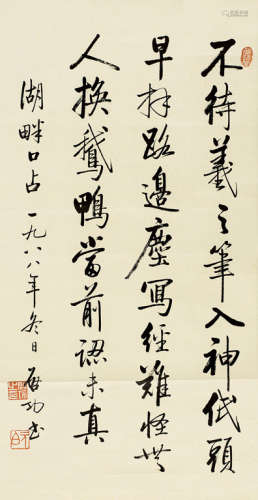 不待羲之筆入神低頭
早拜路邊塵寫經難怪世
人換鵞鴨當前認未真
湖畔口占一九八八年冬日啟功書